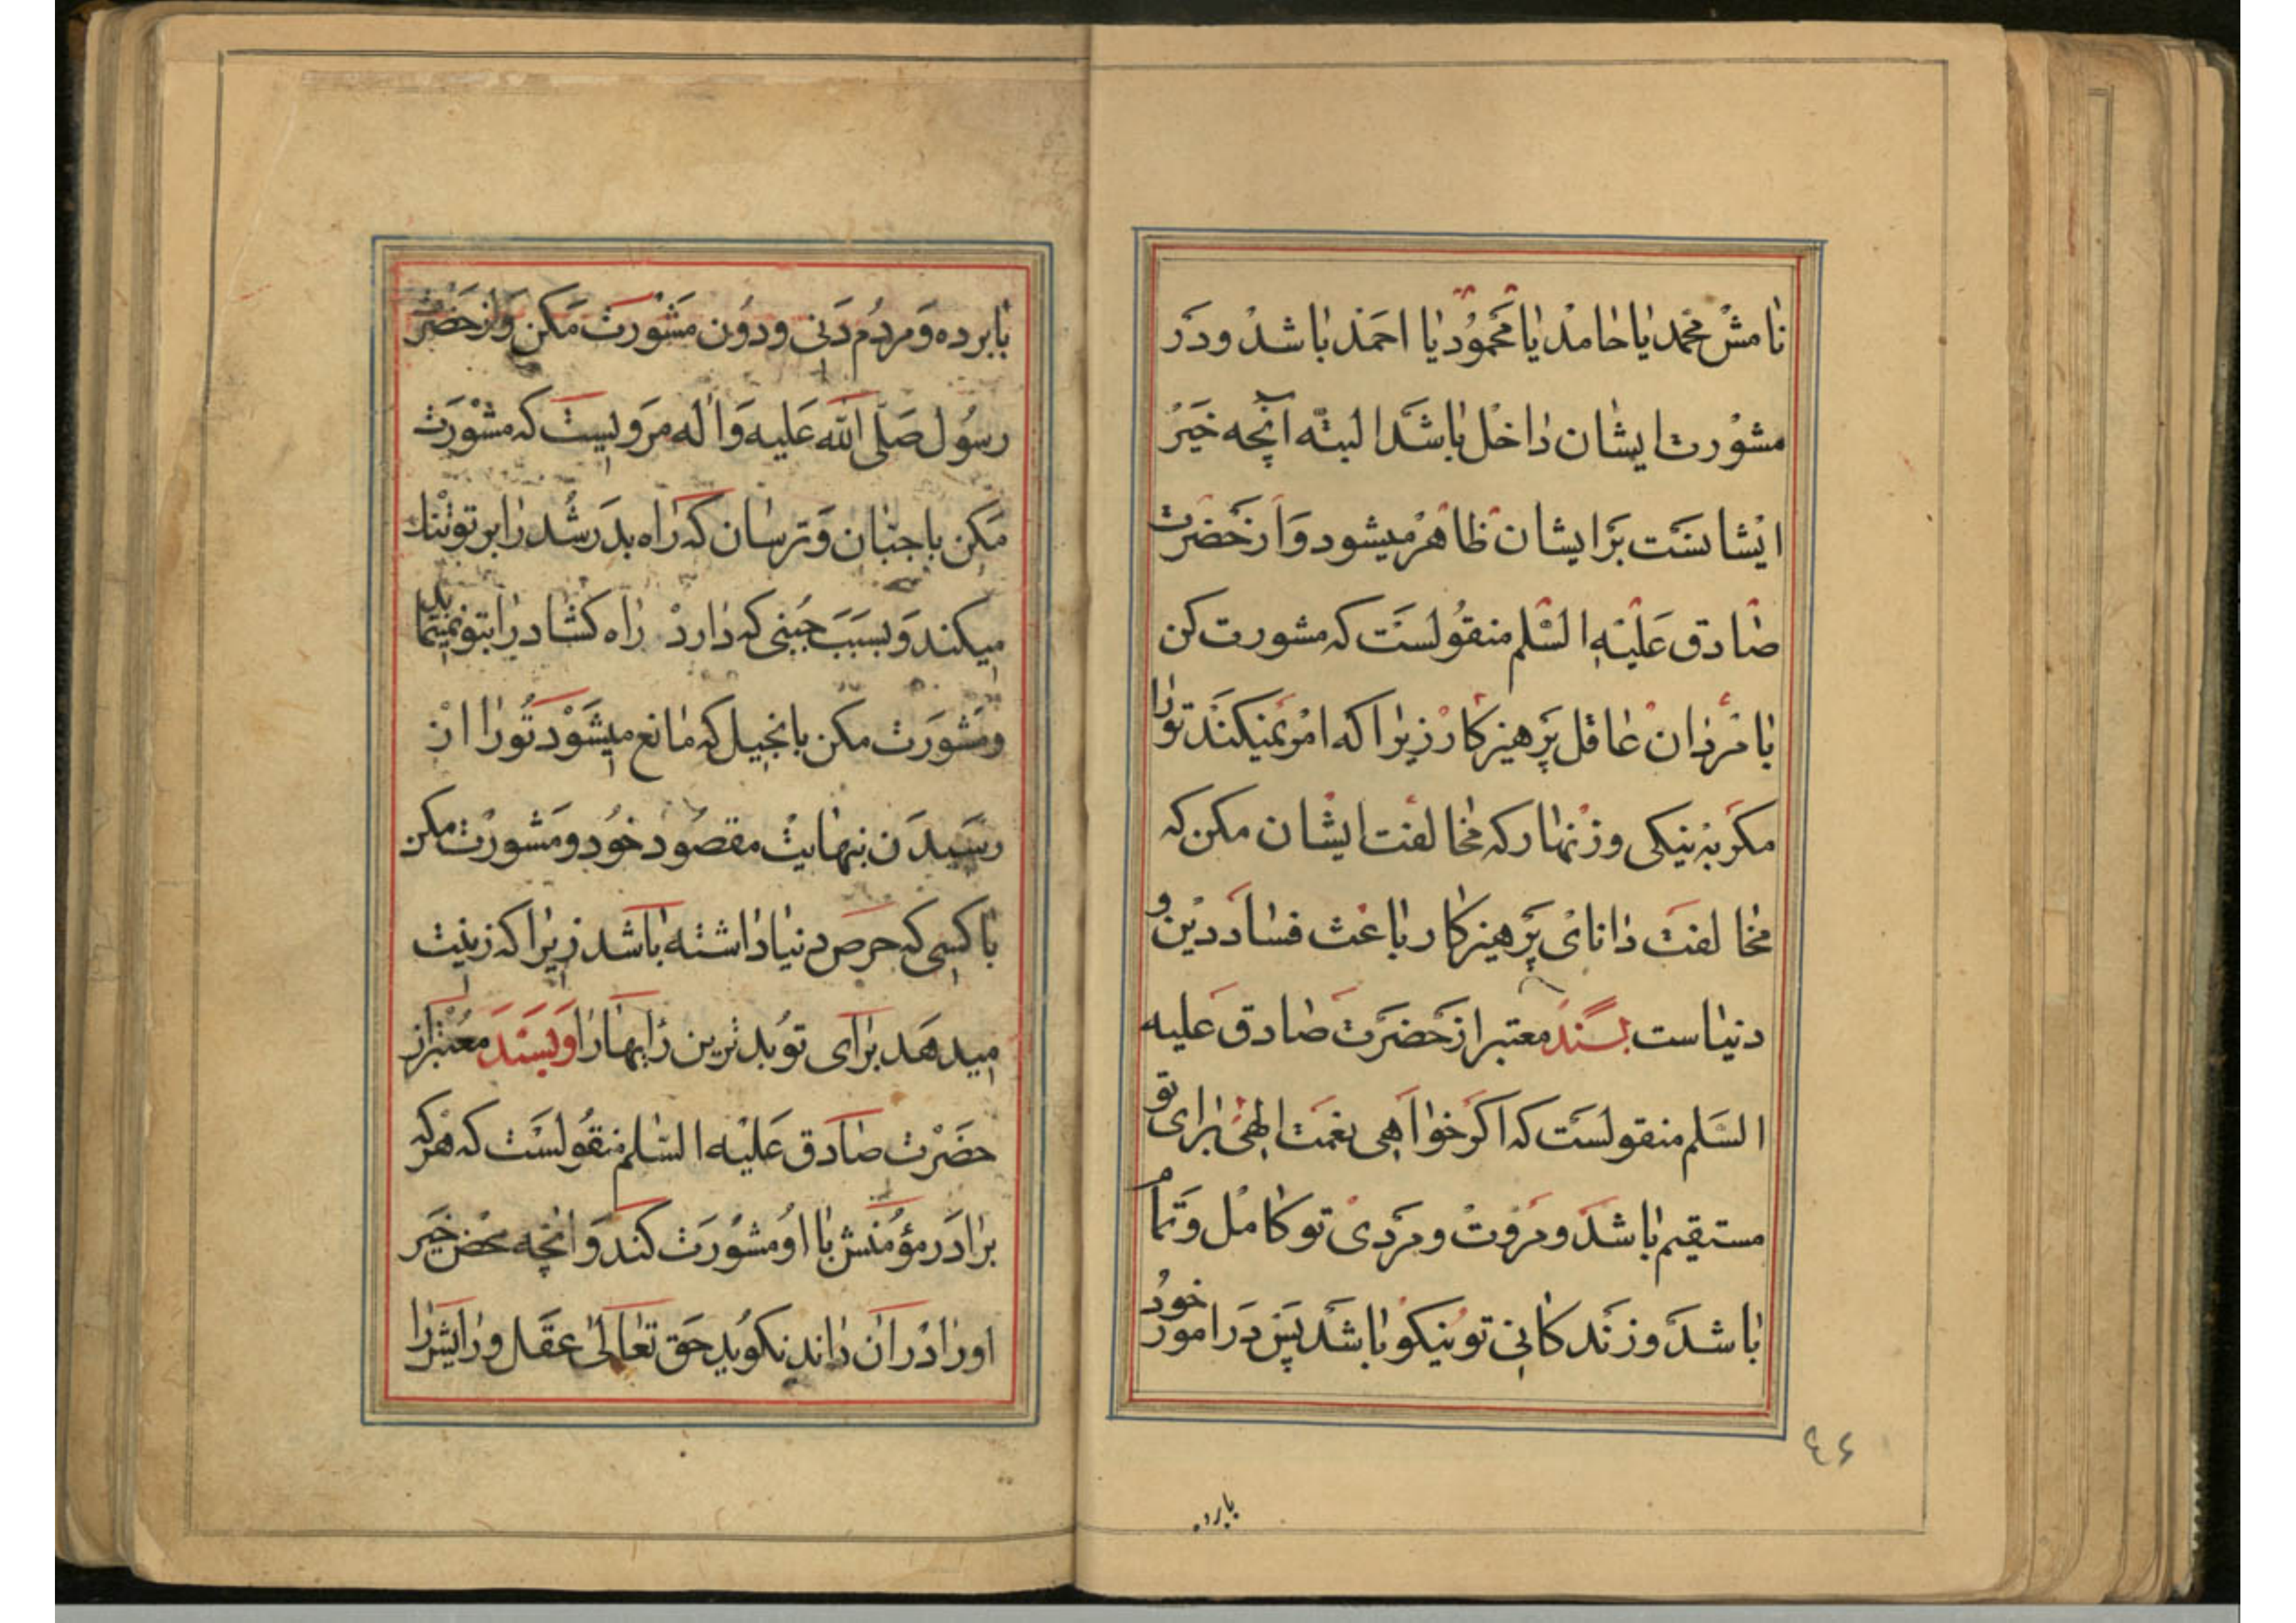 نامش محمد یا حامد یا محمود یا احمد باشد و در
مشورت ایشان داخل باشد البتّه آنچه خیر
ایشانست برایشان ظاهر میشود و از حضرت
صادق علیه السّلم منقولست که مشورت کن
با مردان عاقل پرهیزکار زیرا که امر نمیکنند تو را
مکر به نیکی و زنهار که مخالفت ایشان مکن که
مخالفت دانای پرهیزکار باعث فساد دین و
دنیاست بسند معتبر از حضرت صادق علیه
السّلم منقولست که اکر خواهی نعمت الهی برای تو
مستقیم باشد و مروت و مردی تو کامل و تمام
باشد و زندکانی تو نیکو باشد پس در امور خود
۴۶
بابرده
بابرده و مردم دنی و دون مشورت مکن و از حضرت
رسول صلّی الله علیه و اله مرویست که مشورت
مکن با جبان و ترسان که راه بدرشد را بر تو تنك
میکند و بسبب جبنی که دارد راه کشاد را بتو نمینماید
و مشورت مکن با بخیل که مانع میشود تو را از
رسیدن بنهایت مقصود خود و مشورت مکن
با کسی که حرص دنیا داشته باشد زیرا که زینت
میدهد برای تو بدترین رایها را و بسند معتبر از
حضرت صادق علیه السّلم منقولست که هر که
برادر مؤمنش با او مشورت کند و انچه محض خیر
او را در ان داند نکوید حق تعالی عقل و رایش را